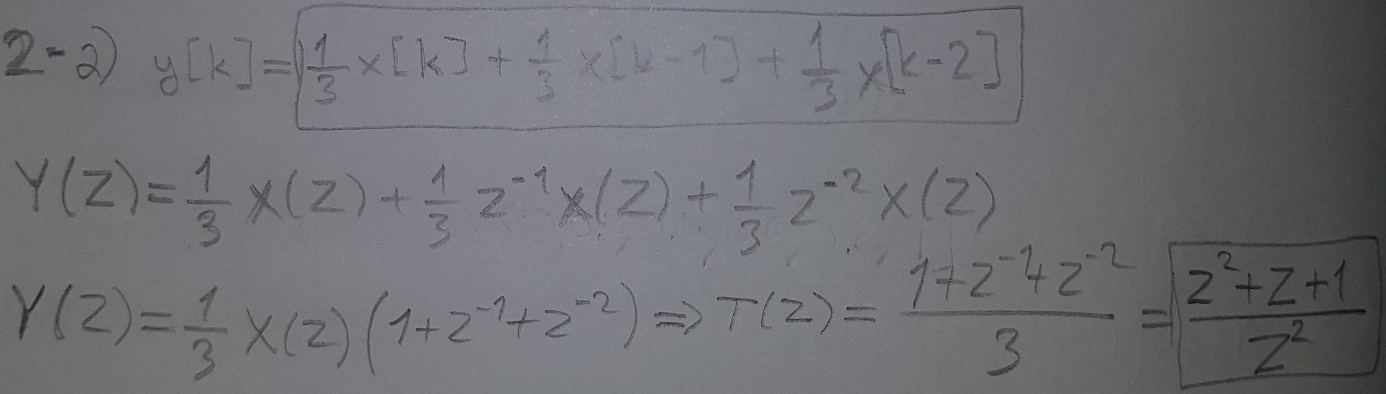 2-2) y[k]=1/3 x[k] + 1/3 x[k-1] + 1/3 x[k-2]
Y(Z)=1/3 X(Z) + 1/3 z⁻¹X(Z) + 1/3 z⁻²X(Z)
Y(Z)=1/3 X(Z)(1+z⁻¹+z⁻²) ⇒ T(Z)= (1+z⁻¹+z⁻²)/3 = (z²+z+1)/z²